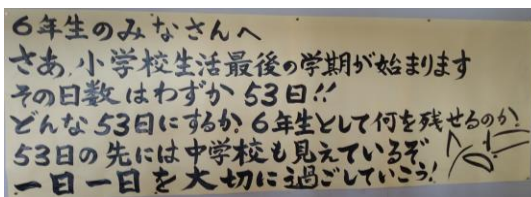 6年生のみなさんへ
さあ、小学校生活最後の学期が始まります
その日数はわずか53日!!
どんな53日にするか、6年生として何を残せるのか?
53日の先には中学校も見えているぞ
一日一日を大切に過ごしていこう!